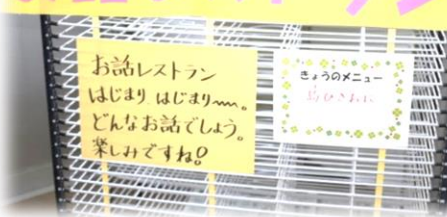 お話レストラン
はじまり はじまり〜〜。
どんなお話でしょう。
楽しみですね!
きょうのメニュー
鳥ひきおに